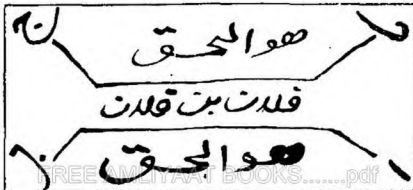 هو الحق
فلان بن فلان
هو الحق
FREE AMLIYAAT BOOKS.......pdf